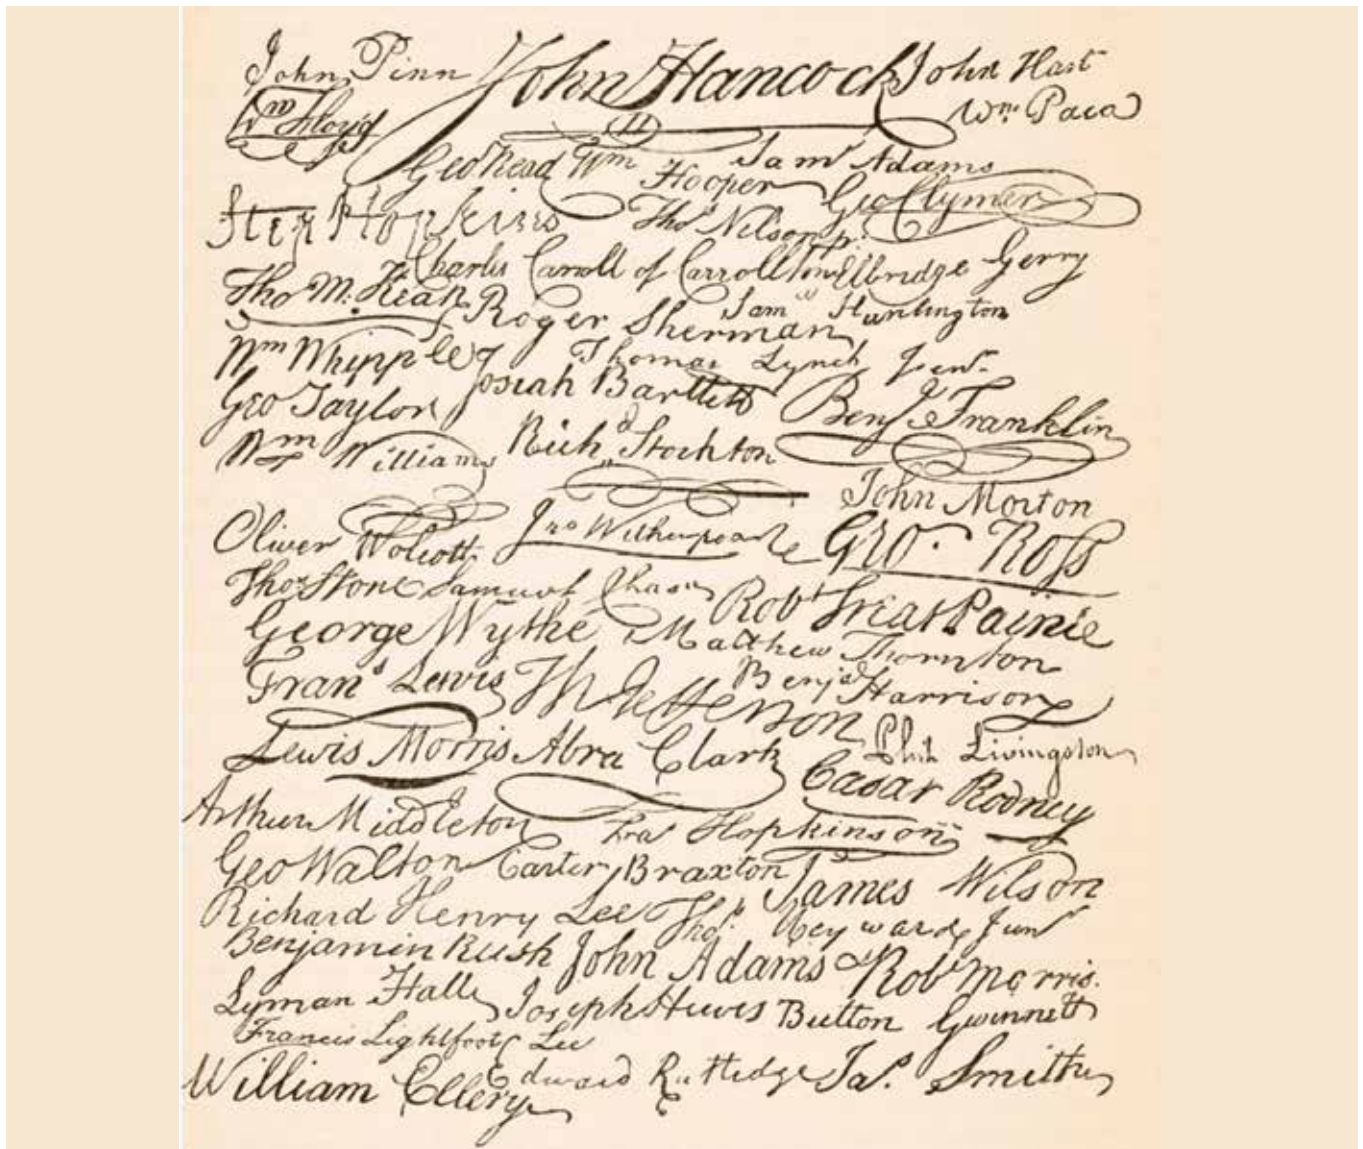 John Penn John Hancock John Hart
Wm Floyd Wm. Paca
Geo Read Wm Hooper Saml Adams
Geo Clymer
Step Hopkins Thos Nelson jr.
Charles Carroll of Carrollton Elbridge Gerry
Tho M:Kean Roger Sherman Saml Huntington
Wm Whipple Thomas Lynch Junr.
Josiah Bartlett Benj Franklin
Geo Taylor
Wm Williams Richd Stockton
John Morton
Oliver Wolcott Jno Witherspoon Geo. Ross
Thos Stone Samuel Chase Robt Treat Paine
George Wythe Matthew Thornton
Frans Lewis Th Jefferson Benj Harrison
Lewis Morris Abra Clark Phil. Livingston
Caesar Rodney
Arthur Middleton Fras Hopkinson
Geo Walton Carter Braxton James Wilson
Richard Henry Lee Thos. Heyward Junr
Benjamin Rush John Adams Robt Morris.
Lyman Hall Joseph Hewes Button Gwinnett
Francis Lightfoot Lee
William Ellery Edward Rutledge Jas. Smith